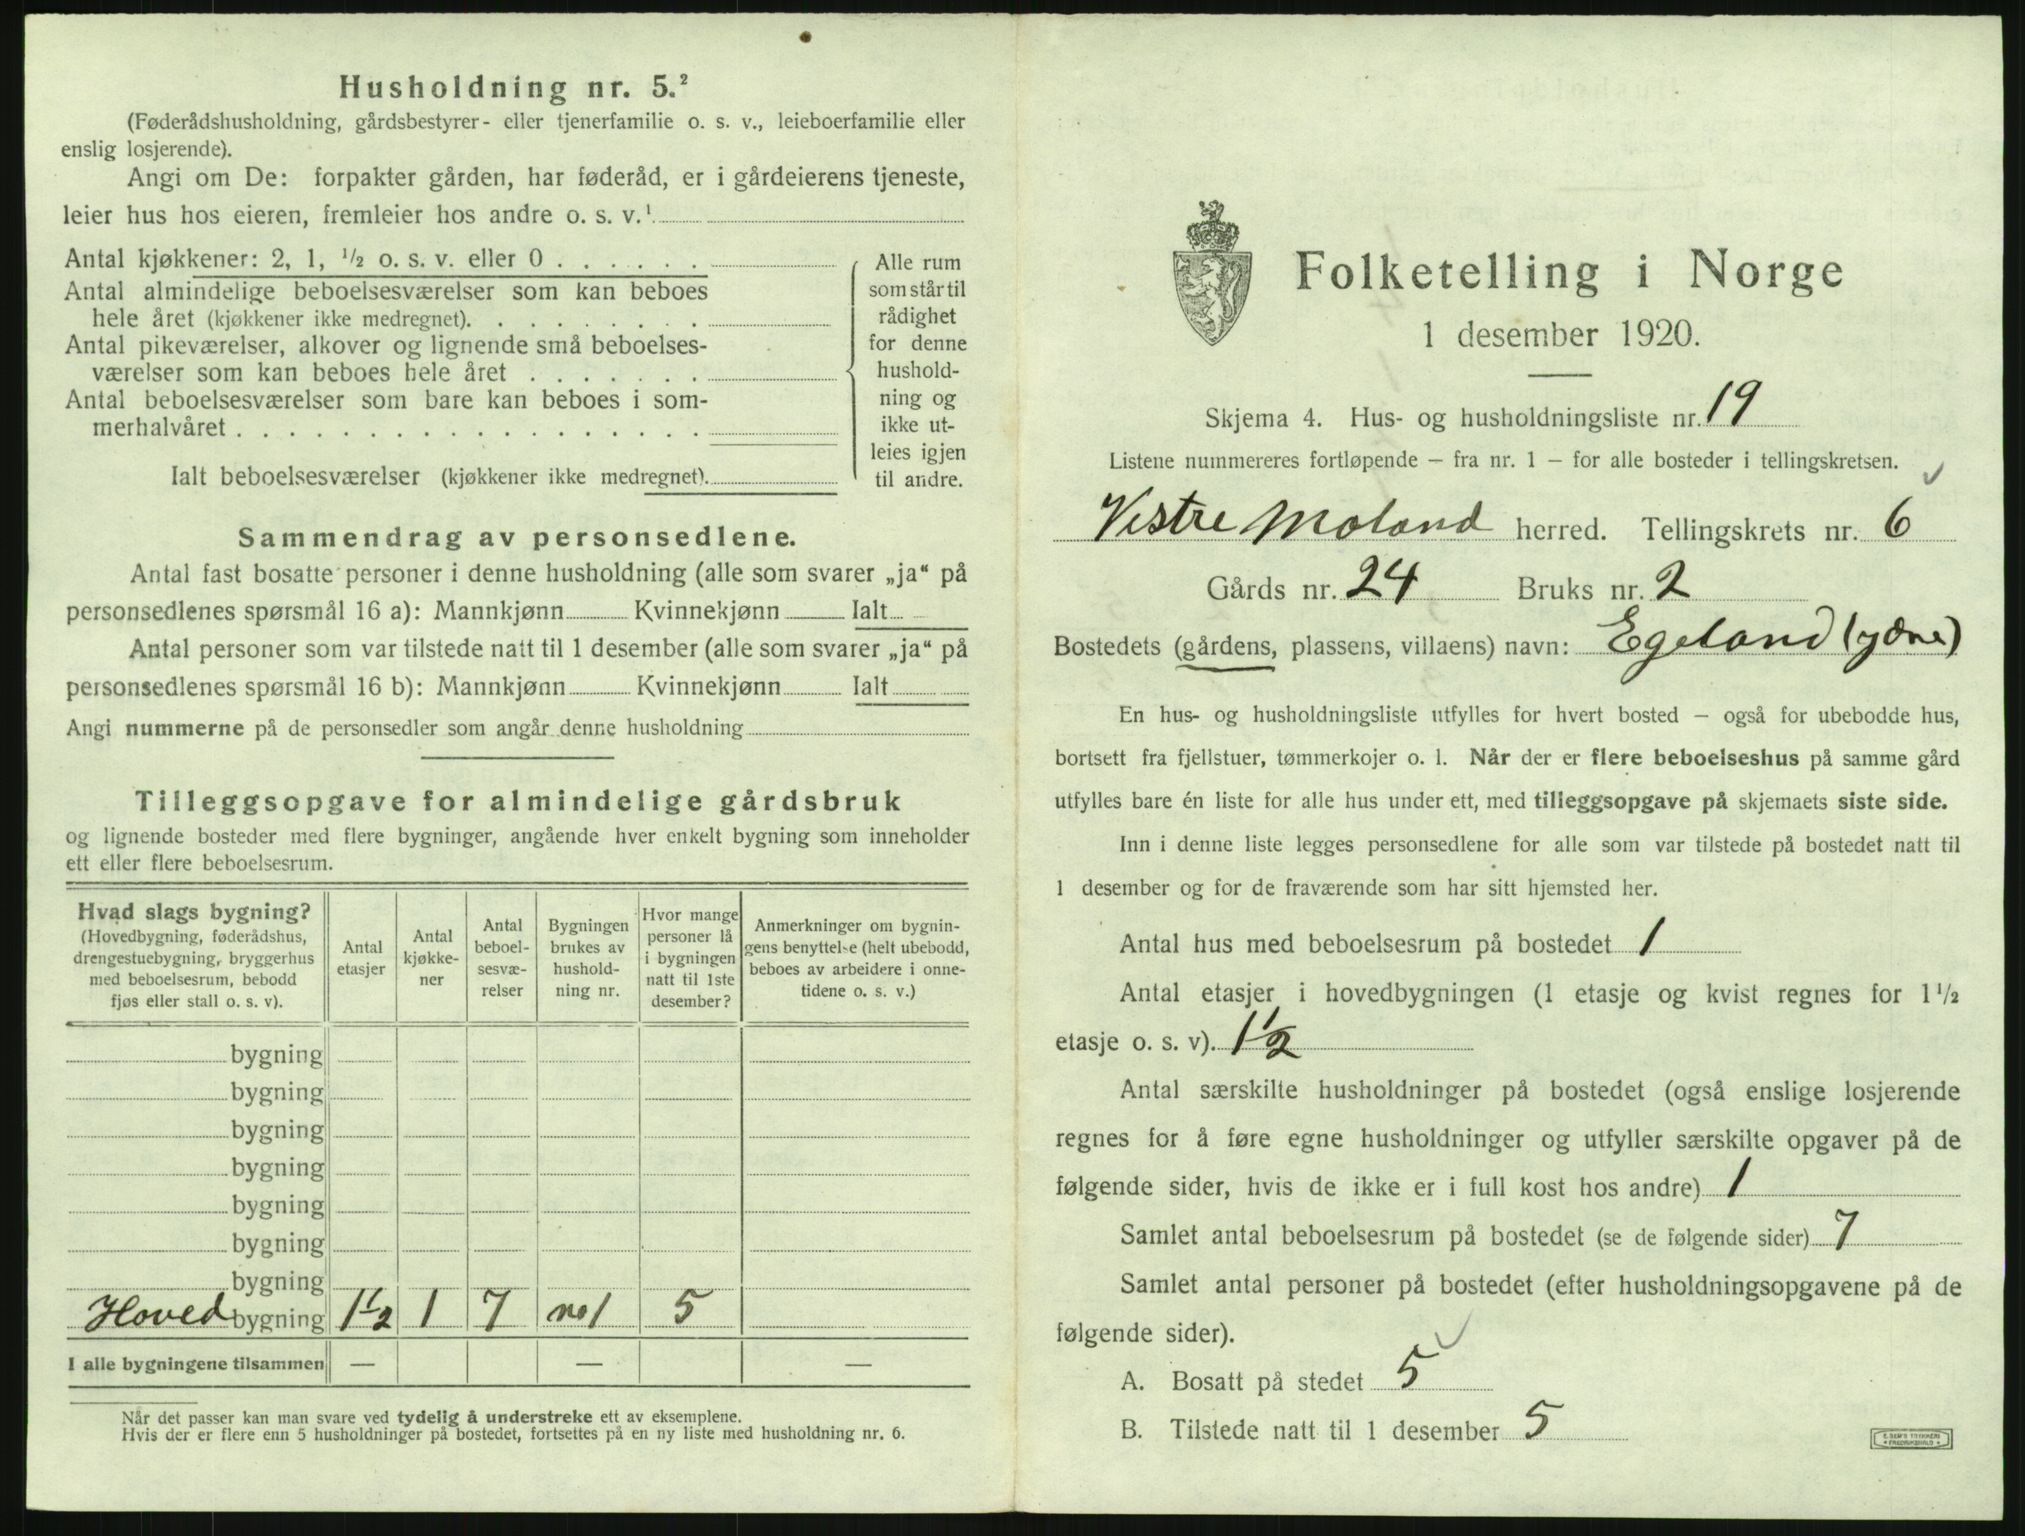 Husholdning nr. 5.²
(Føderådshusholdning, gårdsbestyrer- eller tjenerfamilie o. s. v., leieboerfamilie eller
enslig losjerende).
Angi om De: forpakter gården, har føderåd, er i gårdeierens tjeneste,
leier hus hos eieren, fremleier hos andre o. s. v.¹
Antal kjøkkener: 2, 1, ½ o. s. v. eller 0
Antal almindelige beboelsesværelser som kan beboes
hele året (kjøkkener ikke medregnet).
Antal pikeværelser, alkover og lignende små beboelses-
værelser som kan beboes hele året
Antal beboelsesværelser som bare kan beboes i som-
merhalvåret
Ialt beboelsesværelser (kjøkkener ikke medregnet).
Alle rum
som står til
rådighet
for denne
hushold-
ning og
ikke ut-
leies igjen
til andre.
Sammendrag av personsedlene.
Antal fast bosatte personer i denne husholdning (alle som svarer „ja“ på
personsedlenes spørsmål 16 a): Mannkjønn Kvinnekjønn Ialt
Antal personer som var tilstede natt til 1 desember (alle som svarer „ja“ på
personsedlenes spørsmål 16 b): Mannkjønn Kvinnekjønn Ialt
Angi nummerne på de personsedler som angår denne husholdning
Tilleggsopgave for almindelige gårdsbruk
og lignende bosteder med flere bygninger, angående hver enkelt bygning som inneholder
ett eller flere beboelsesrum.
Hvad slags bygning?
(Hovedbygning, føderådshus,
drengestuebygning, bryggerhus
med beboelsesrum, bebodd
fjøs eller stall o. s. v).
Antal
etasjer
Antal
kjøkke-
ner
Antal
beboel-
sesvæ-
relser
Bygningen
brukes av
hushold-
ning nr.
Hvor mange
personer lå
i bygningen
natt til 1ste
desember?
Anmerkninger om bygnin-
gens benyttelse (helt ubebodd,
beboes av arbeidere i onne-
tidene o. s. v.)
bygning
bygning
bygning
bygning
bygning
bygning
bygning
Hoved bygning 1½ 1 7 no 1 5
I alle bygningene tilsammen — — —
Når det passer kan man svare ved tydelig å understreke ett av eksemplene.
Hvis der er flere enn 5 husholdninger på bostedet, fortsettes på en ny liste med husholdning nr. 6.
Folketelling i Norge
1 desember 1920.
Skjema 4. Hus- og husholdningsliste nr. 19
Listene nummereres fortløpende – fra nr. 1 – for alle bosteder i tellingskretsen.
Vestre Moland herred. Tellingskrets nr. 6
Gårds nr. 24 Bruks nr. 2
Bostedets (gårdens, plassens, villaens) navn: Egeland (ydre)
En hus- og husholdningsliste utfylles for hvert bosted – også for ubebodde hus,
bortsett fra fjellstuer, tømmerkojer o. l. Når der er flere beboelseshus på samme gård
utfylles bare én liste for alle hus under ett, med tilleggsopgave på skjemaets siste side.
Inn i denne liste legges personsedlene for alle som var tilstede på bostedet natt til
1 desember og for de fraværende som har sitt hjemsted her.
Antal hus med beboelsesrum på bostedet 1
Antal etasjer i hovedbygningen (1 etasje og kvist regnes for 1½
etasje o. s. v). 1½
Antal særskilte husholdninger på bostedet (også enslige losjerende
regnes for å føre egne husholdninger og utfyller særskilte opgaver på de
følgende sider, hvis de ikke er i full kost hos andre) 1
Samlet antal beboelsesrum på bostedet (se de følgende sider) 7
Samlet antal personer på bostedet (efter husholdningsopgavene på de
følgende sider).
A. Bosatt på stedet 5
B. Tilstede natt til 1 desember 5